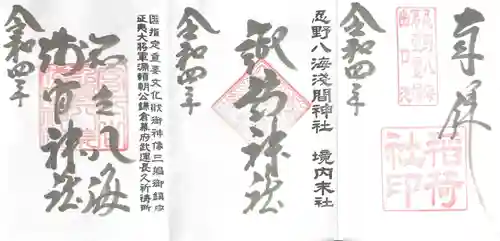 奉拝
出口池
稲荷
社印
令和四年
忍野八海浅間神社 境内末社
神社
令和四年
国指定重要文化財御神像三躯御鎮座
大将軍源頼朝公鎌倉幕府武運長久祈祷所
忍之八海
神社
令和四年